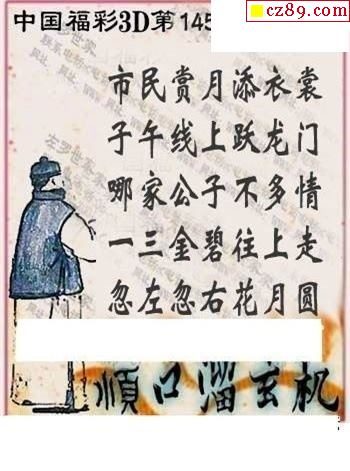 cz89.com
中国福彩3D第145
市民赏月添衣裳
子午线上跃龙门
哪家公子不多情
一三金碧往上走
忽左忽右花月圆
順口溜玄机